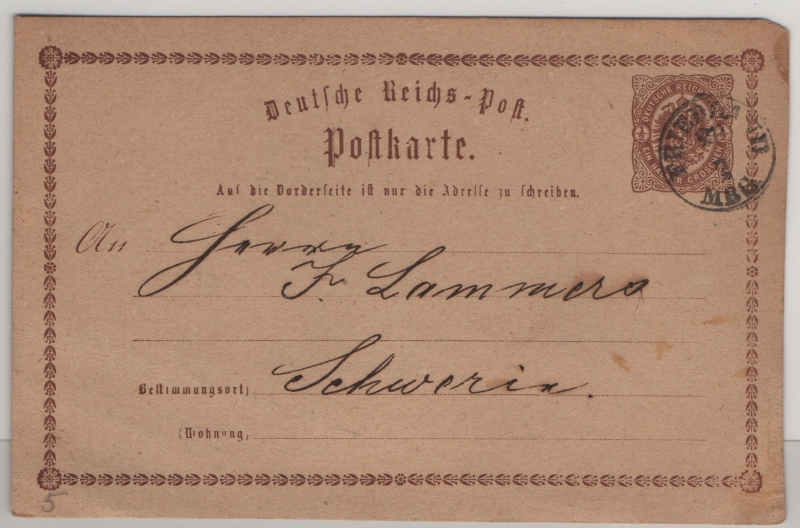 Deutsche Reichs-Post.
Postkarte.
DEUTSCHE REICHS
EIN GROSCHEN
FRIEDLAND
MBG.
Auf die Vorderseite ist nur die Adresse zu schreiben.
An Herrn
F. Lammers
Bestimmungsort) Schwerin.
(Wohnung,
5